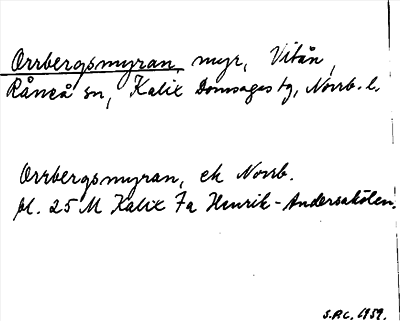 Orrbergsmyran, myr, Vitån,
Råneå sn, Kalix Domsagas tg, Norrb. l.
Orrbergsmyran, ek Norrb.
bl. 25 M Kalix Fa Henrik-Andersakölen.
S.P.C. 1959.